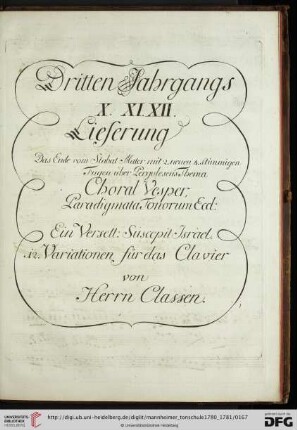 Dritten Jahrgangs
X. XI. XII.
Lieferung
Das Ende vom Stabat Mater mit 2. neuen 4. stimmigen
Fugen über Pergolesens Thema.
Choral Vesper.
Paradigmata Tonorum Eccl:
Ein Versett: Suscepit Israel.
Variationen für das Clavier
von
Herrn Classen.
UNIVERSITÄTS-
BIBLIOTHEK
HEIDELBERG
http://digi.ub.uni-heidelberg.de/diglit/mannheimer_tonschule1780_1781/0167
© Universitätsbibliothek Heidelberg
gefördert durch die
DFG